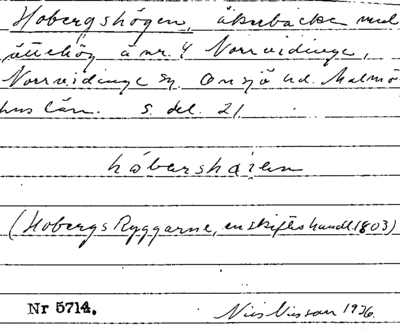 Hobergshögen, åkerbacke med
ättehög å nr. 4 Norrvidinge,
Norrvidinge sn. Onsjö hd. Malmö
hus län. S. del. 21
håbarshøien
(Hobergs Ryggarne, enskifteshandl. 1803)
Nr 5714. Nils Nilsson 1926.